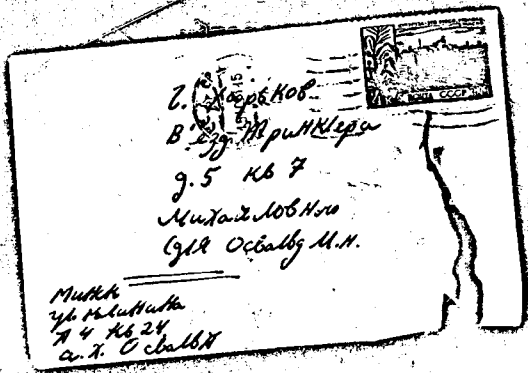 ПОЧТА СССР
г. Харьков
Въезд Тринклера
д. 5 кв 7
Михайловню
(для Освальд М.Н.
Минск
ул Калинина
д 4 кв 24
А. Х. Освальд